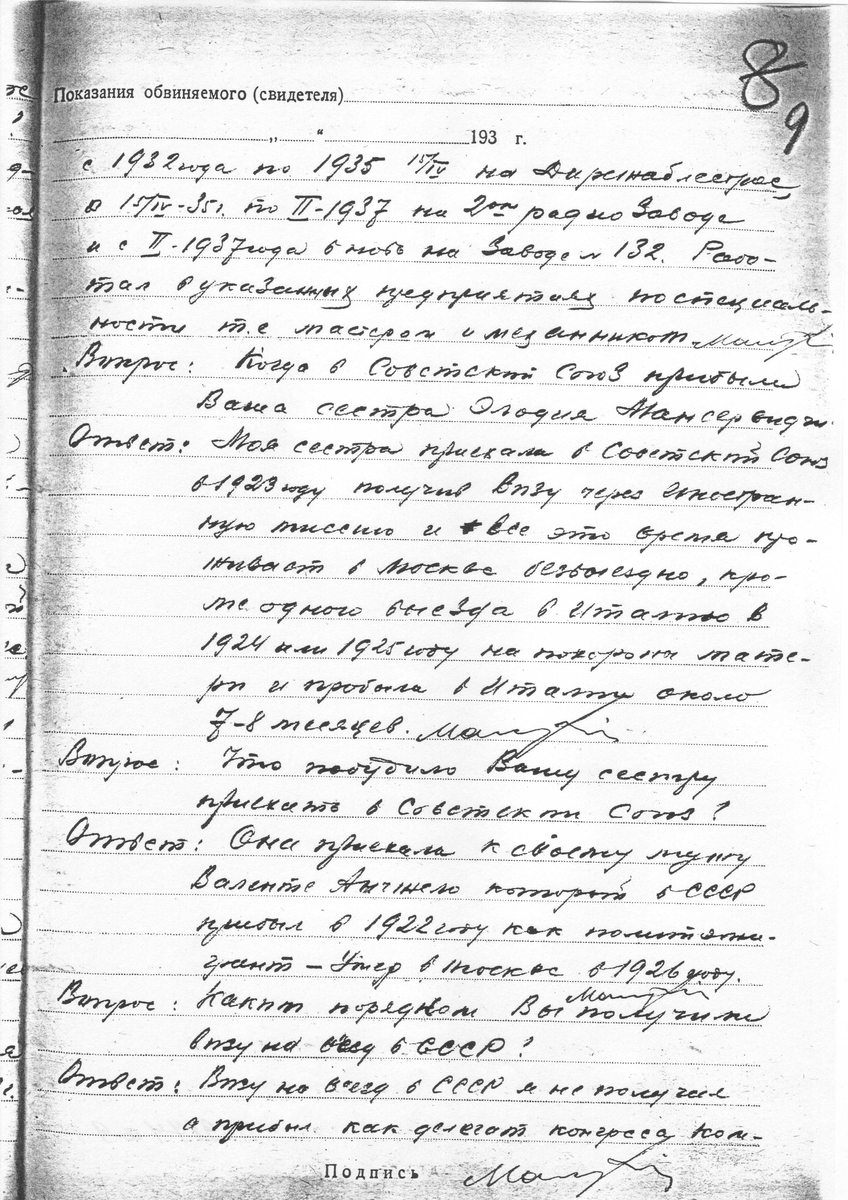 8
9
Показания обвиняемого (свидетеля)
„ “ 193 г.
с 1932 года по 1935 15/IV на Дирижаблестрое,
с 15/IV-35 г. по II-1937 на 2ом радио Заводе
и с II-1937 года вновь на Заводе № 132. Рабо-
тал в указанных предприятиях по специаль-
ности т.е мастером и механником.
Вопрос: Когда в Советский Союз прибыли
Ваша сестра Элодия Мансервидчи
Ответ: Моя сестра приехала в Советский Союз
в 1923 году получив визу через Иностран-
ную миссию и все это время про-
живает в Москве безвыездно, кро-
ме одного выезда в Италию в
1924 или 1925 году на похороны мате-
ри и пробыла в Италии около
7-8 месяцев.
Вопрос: Что побудило Вашу сестру
приехать в Советский Союз?
Ответ: Она приехала к своему мужу
Валенте Анчжело который в СССР
прибыл в 1922 году как политэми-
грант – Умер в Москве в 1926 году.
Вопрос: Каким порядком Вы получили
визу на въезд в СССР?
Ответ: Визу на въезд в СССР я не получил
а прибыл как делегат конгресса Ком-
Подпись